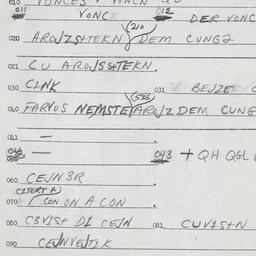 010 VONCES
011 VONC 012 DER VONC
(210)
020 AROJZSHTEKN DEM CUNGZ
021 CU AROJSSHTEKN
030 CINK 031 BEJZE C
(536)
040 FARVOS NEMSTE AROJZ DEM CUNG
042 —
— 043 + QH QGL
060 CEJN3R
070 CON ON A CON
080 C3VISH DI CEJN 081 CUVISHN
090 CEJNVEJTIK